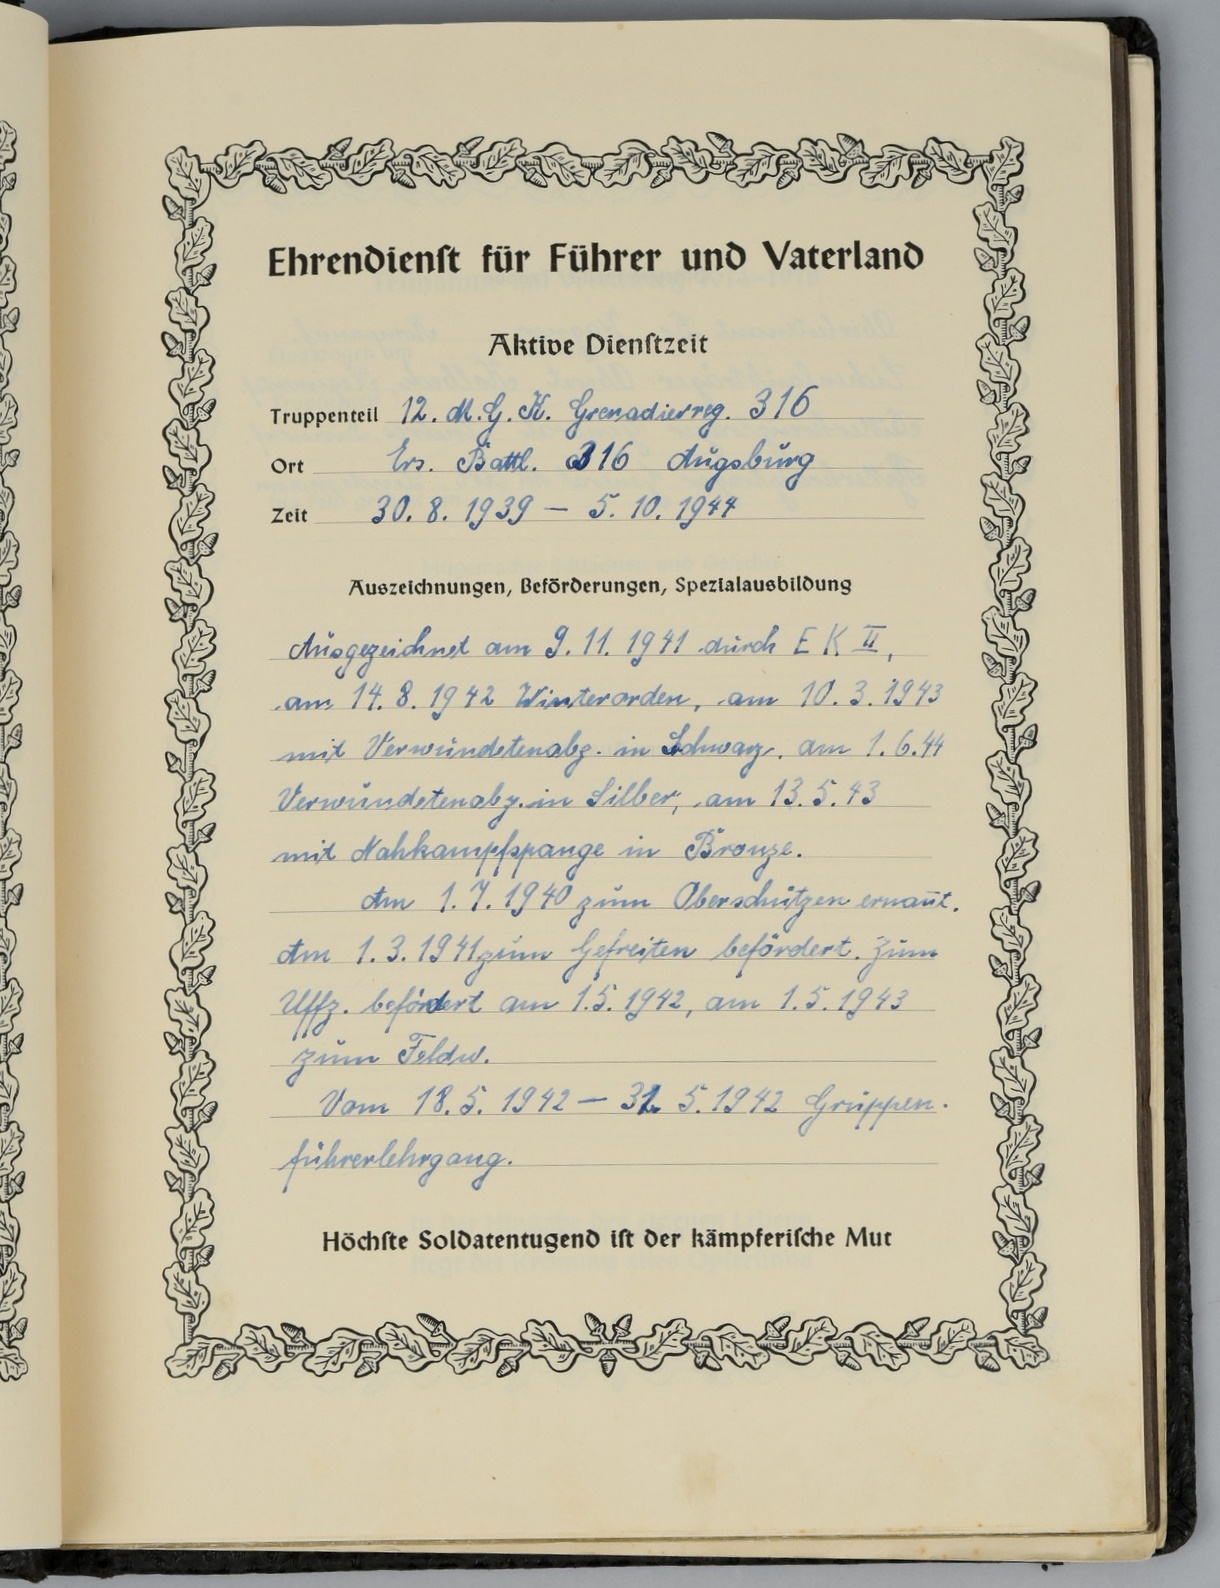 Ehrendienst für Führer und Vaterland
Aktive Dienstzeit
Truppenteil 12. M. G. K. Grenadierreg. 316
Ort Ers. Battl. 316 Augsburg
Zeit 30. 8. 1939 – 5. 10. 1944
Auszeichnungen, Beförderungen, Spezialausbildung
Ausgezeichnet am 9. 11. 1941 durch E K II,
am 14. 8. 1942 Winterorden, am 10. 3. 1943
mit Verwundetenabz. in Schwarz, am 1. 6. 44
Verwundetenabz. in Silber, am 13. 5. 43
mit Nahkampfspange in Bronze.
Am 1. 7. 1940 zum Oberschützen ernan̄t.
Am 1. 3. 1941 zum Gefreiten befördert. Zum
Uffz. befördert am 1. 5. 1942, am 1. 5. 1943
zum Feldw.
Vom 18. 5. 1942 – 31. 5. 1942 Gruppen-
führerlehrgang.
Höchste Soldatentugend ist der kämpferische Mut